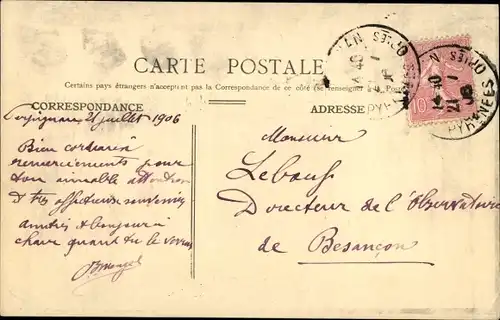 CARTE POSTALE
Certains pays étrangers n'acceptent pas la Correspondance de ce côté (se renseigner à la Poste)
CORRESPONDANCE
ADRESSE
Perpignan 21 juillet 1906
Bien cordiaux
remerciements pour
ton aimable attention
& très affectueux souvenirs
amitiés & bonjour à
quand tu le verras
Monsieur
Lebeuf
Directeur de l'Observatoire
de Besançon
10
PYRENEES